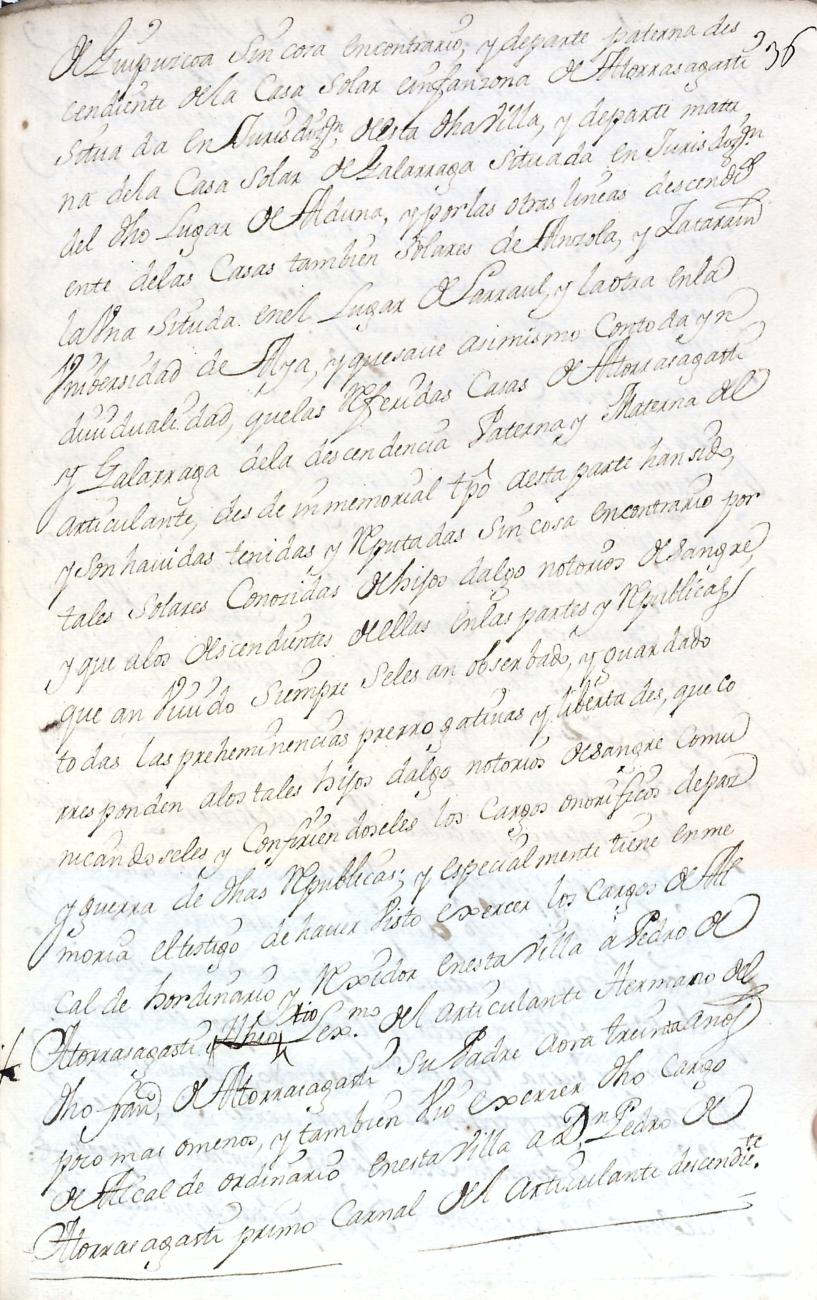 36
de Guipuzcoa sin cosa encontrario, y departe paterna des
cendiente dela Casa Solar einfanzona de Atorrasagasti
situa da en Jurisdizn. desta dha Villa, y departe mater
na dela Casa Solar de Galarraga situada en Jurisdizn.
del dho Lugar de Aduna, y porlas otras lineas descendi
ente delas Casas tambien Solares de Anzola, y Zatarain
la Vna Situda enel Lugar de Larraul, y laotra enla
Vnibersidad de Aya, y quesave asimismo Contoda yn
diuidualidad, quelas Referidas Casas de Atorrasagasti
y Galarraga dela descendencia Paterna y Materna del
articulante, des de inmemorial tpo aesta parte hansido,
y son hauidas tenidas y Reputadas sin cosa encontrario por
tales Solares Conozidas de hijos dalgo notorios de sangre,
y que alos descendientes de ellas enlas partes y Republicas
que an Viuido Siempre seles an obserbado, y guardado
todas las preheminencias prerrogatiuas y libertades, que co
rresponden alostales hijos dalgo notorios de sangre Comu
nicandoseles y Confiriendoseles los Cargos onorificos depaz
y guerra de dhas Republicas; y especialmente tiene enme
moria eltestigo de hauer Visto exercer los Cargos de Al
cal de hordinario y Rexidor enesta Villa à Pedro de
Atorrasagasti tio Lexmo. del articulante Hermano del
dho franco. de Atorrasagasti su Padre aora treinta años
poco mas omenos, y tambien Vió exerzer dho Cargo
de Alcal de ordinario enesta Villa a Dn. Pedro de
Atorrasagasti primo Carnal del articulante descendte.